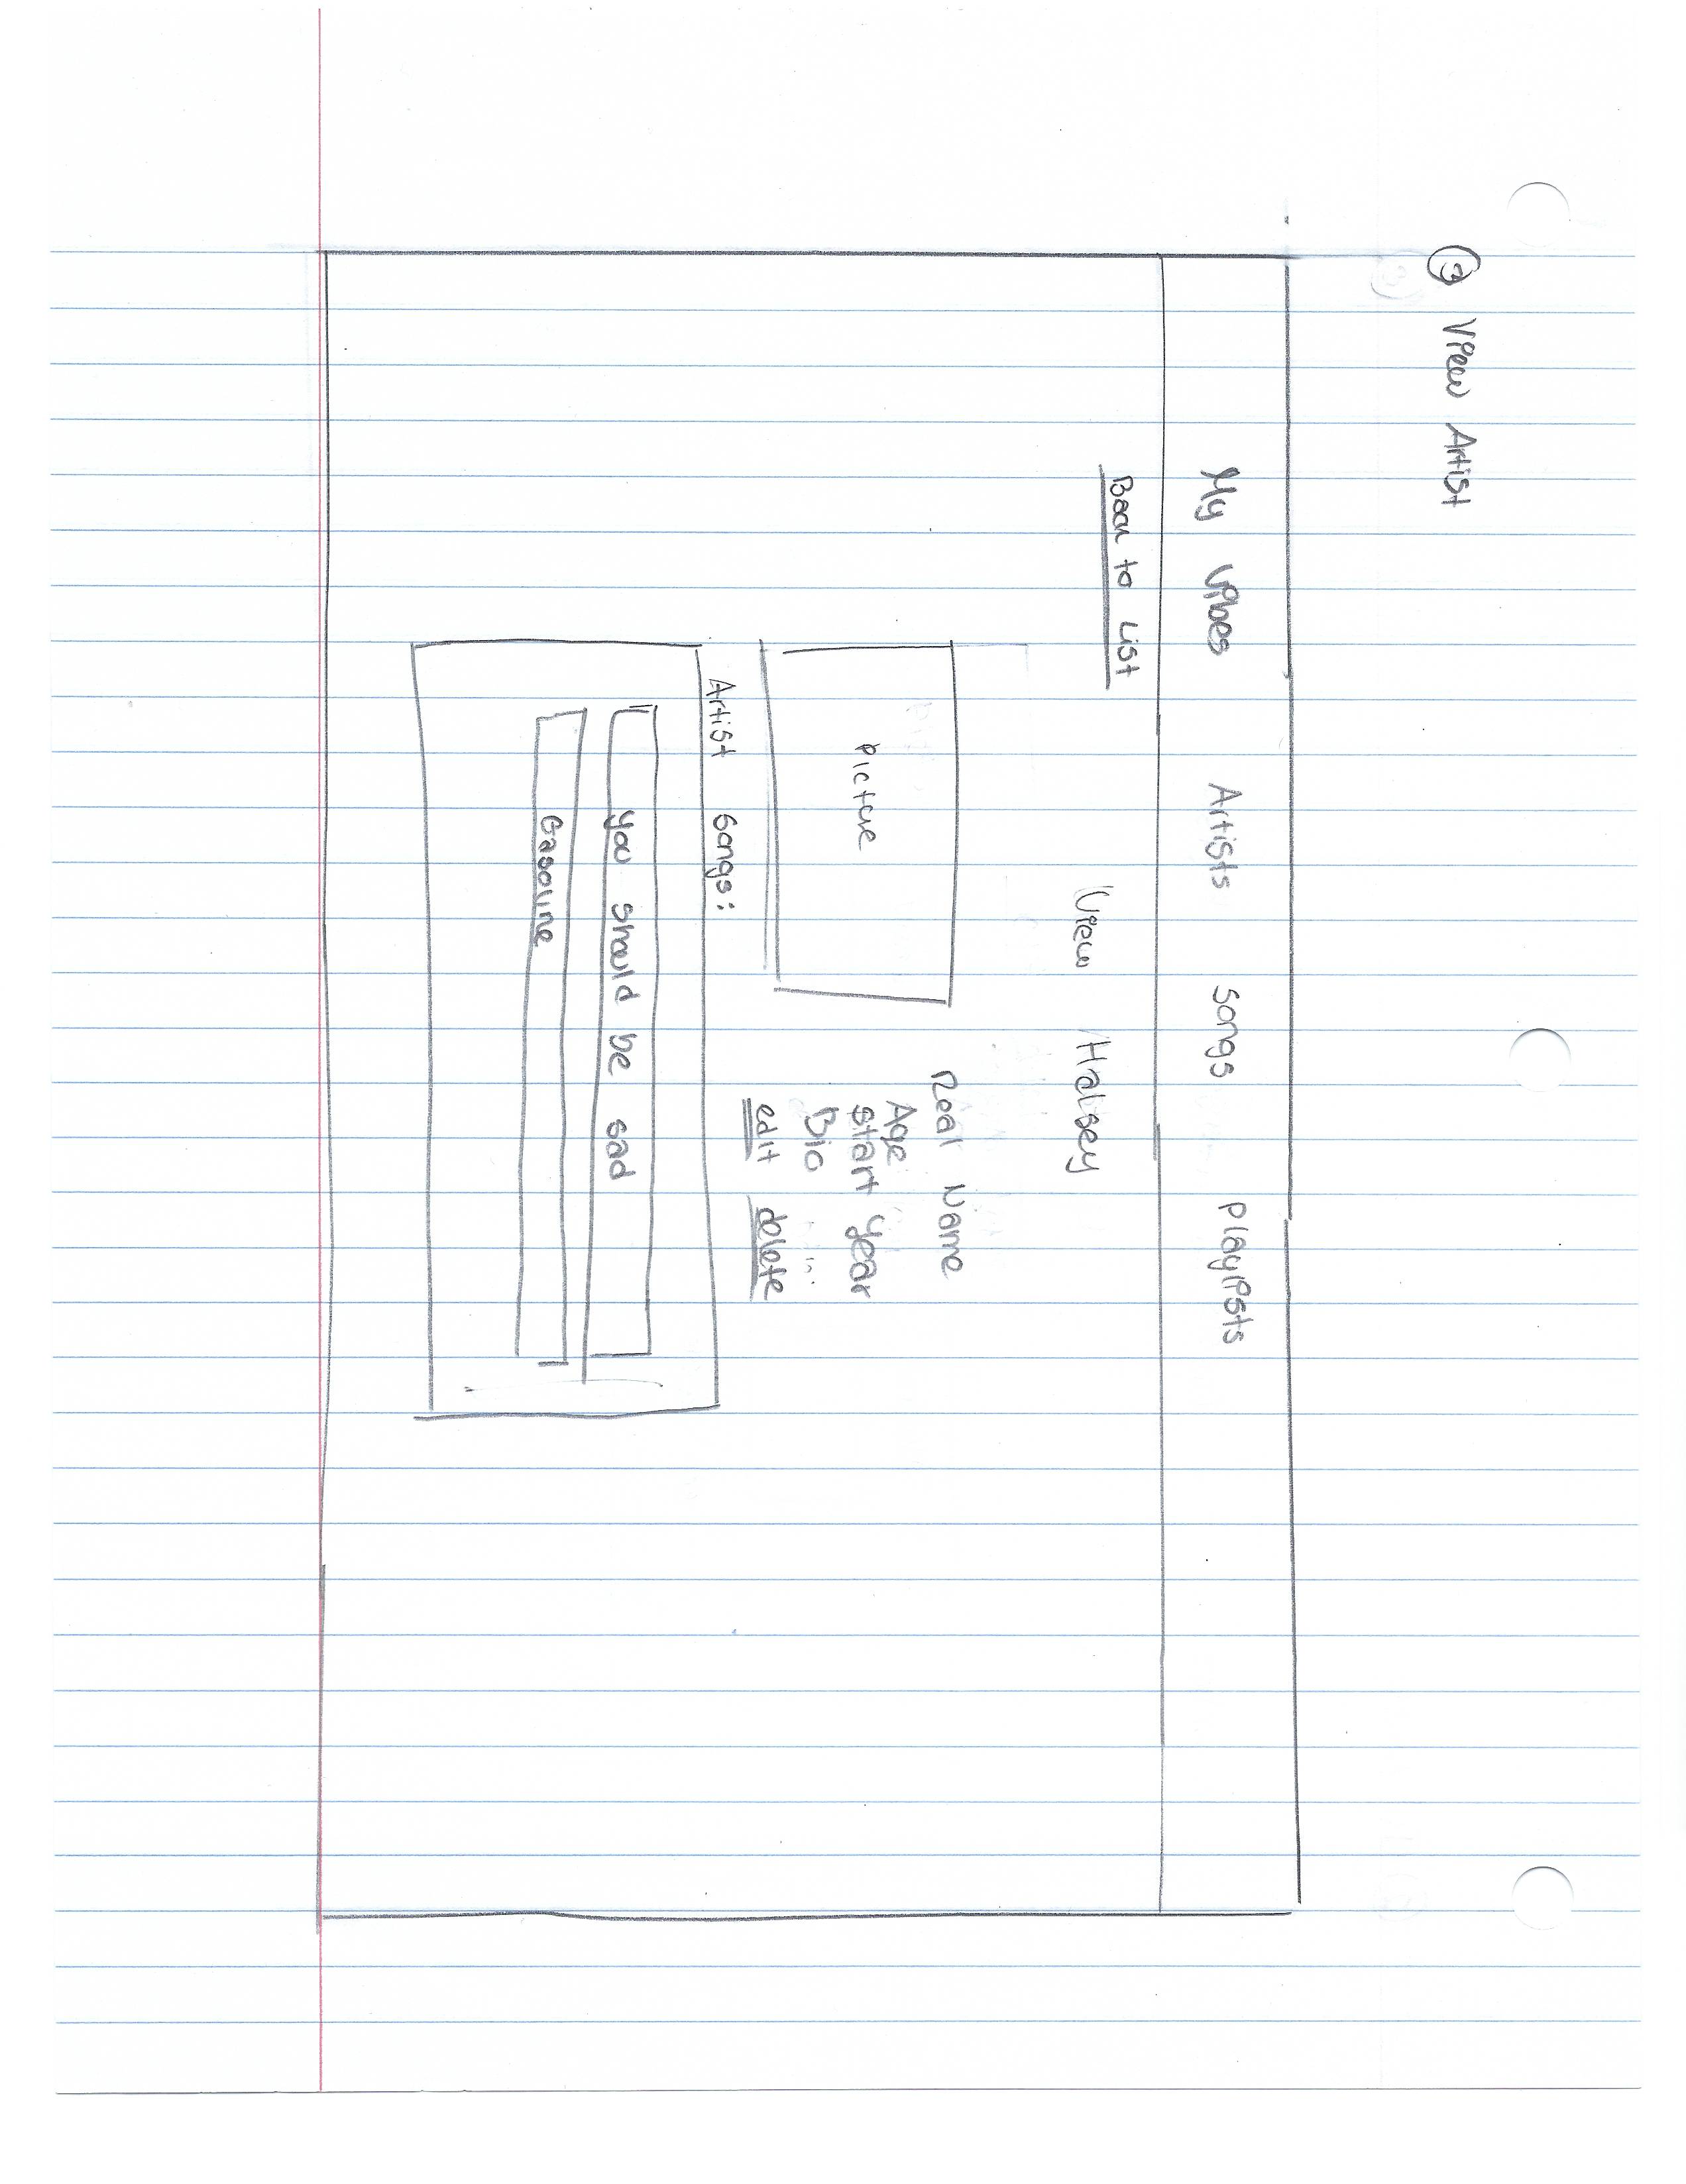 ③ View Artist
My Vibes Artists Songs Playlists
Back to List
View Halsey
Picture
Real Name
Age
Start Year
Bio ...
edit delete
Artist Songs:
you should be sad
Gasoline